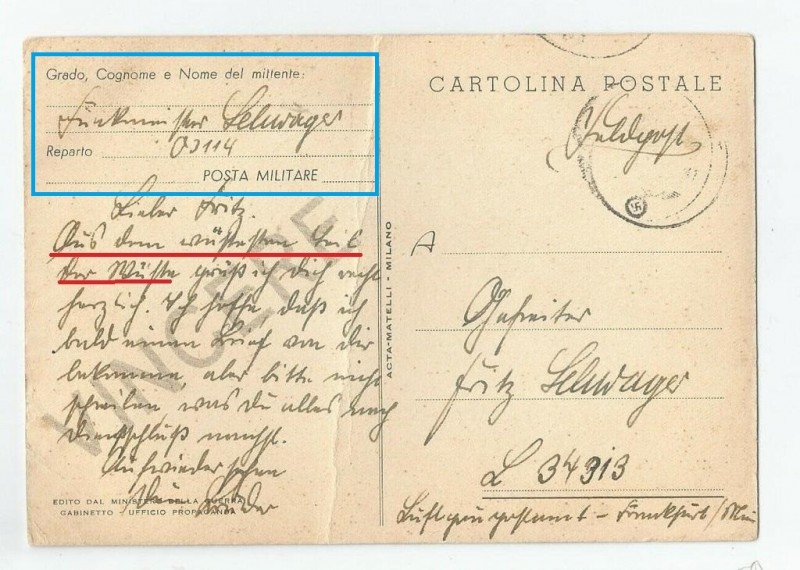 Grado, Cognome e Nome del mittente:
Funkmeister Schwager
Reparto 03114
POSTA MILITARE
Lieber Fritz.
Aus dem wüstesten Teil
der Wüste grüß ich Dich recht
herzlich. Ich hoffe daß ich
bald einen Brief von dir
bekomme, aber bitte nicht
schreiben, was Du alles nach
Dienstschluß machst.
Auf wiedersehen
Bruder
VINCERE
EDITO DAL MINISTERO DELLA GUERRA
GABINETTO - UFFICIO PROPAGANDA
ACTA-MATELLI - MILANO
CARTOLINA POSTALE
Feldpost
A
Gefreiter
Fritz Schwager
L 34313
Luftgaupostamt - Frankfurt/Main